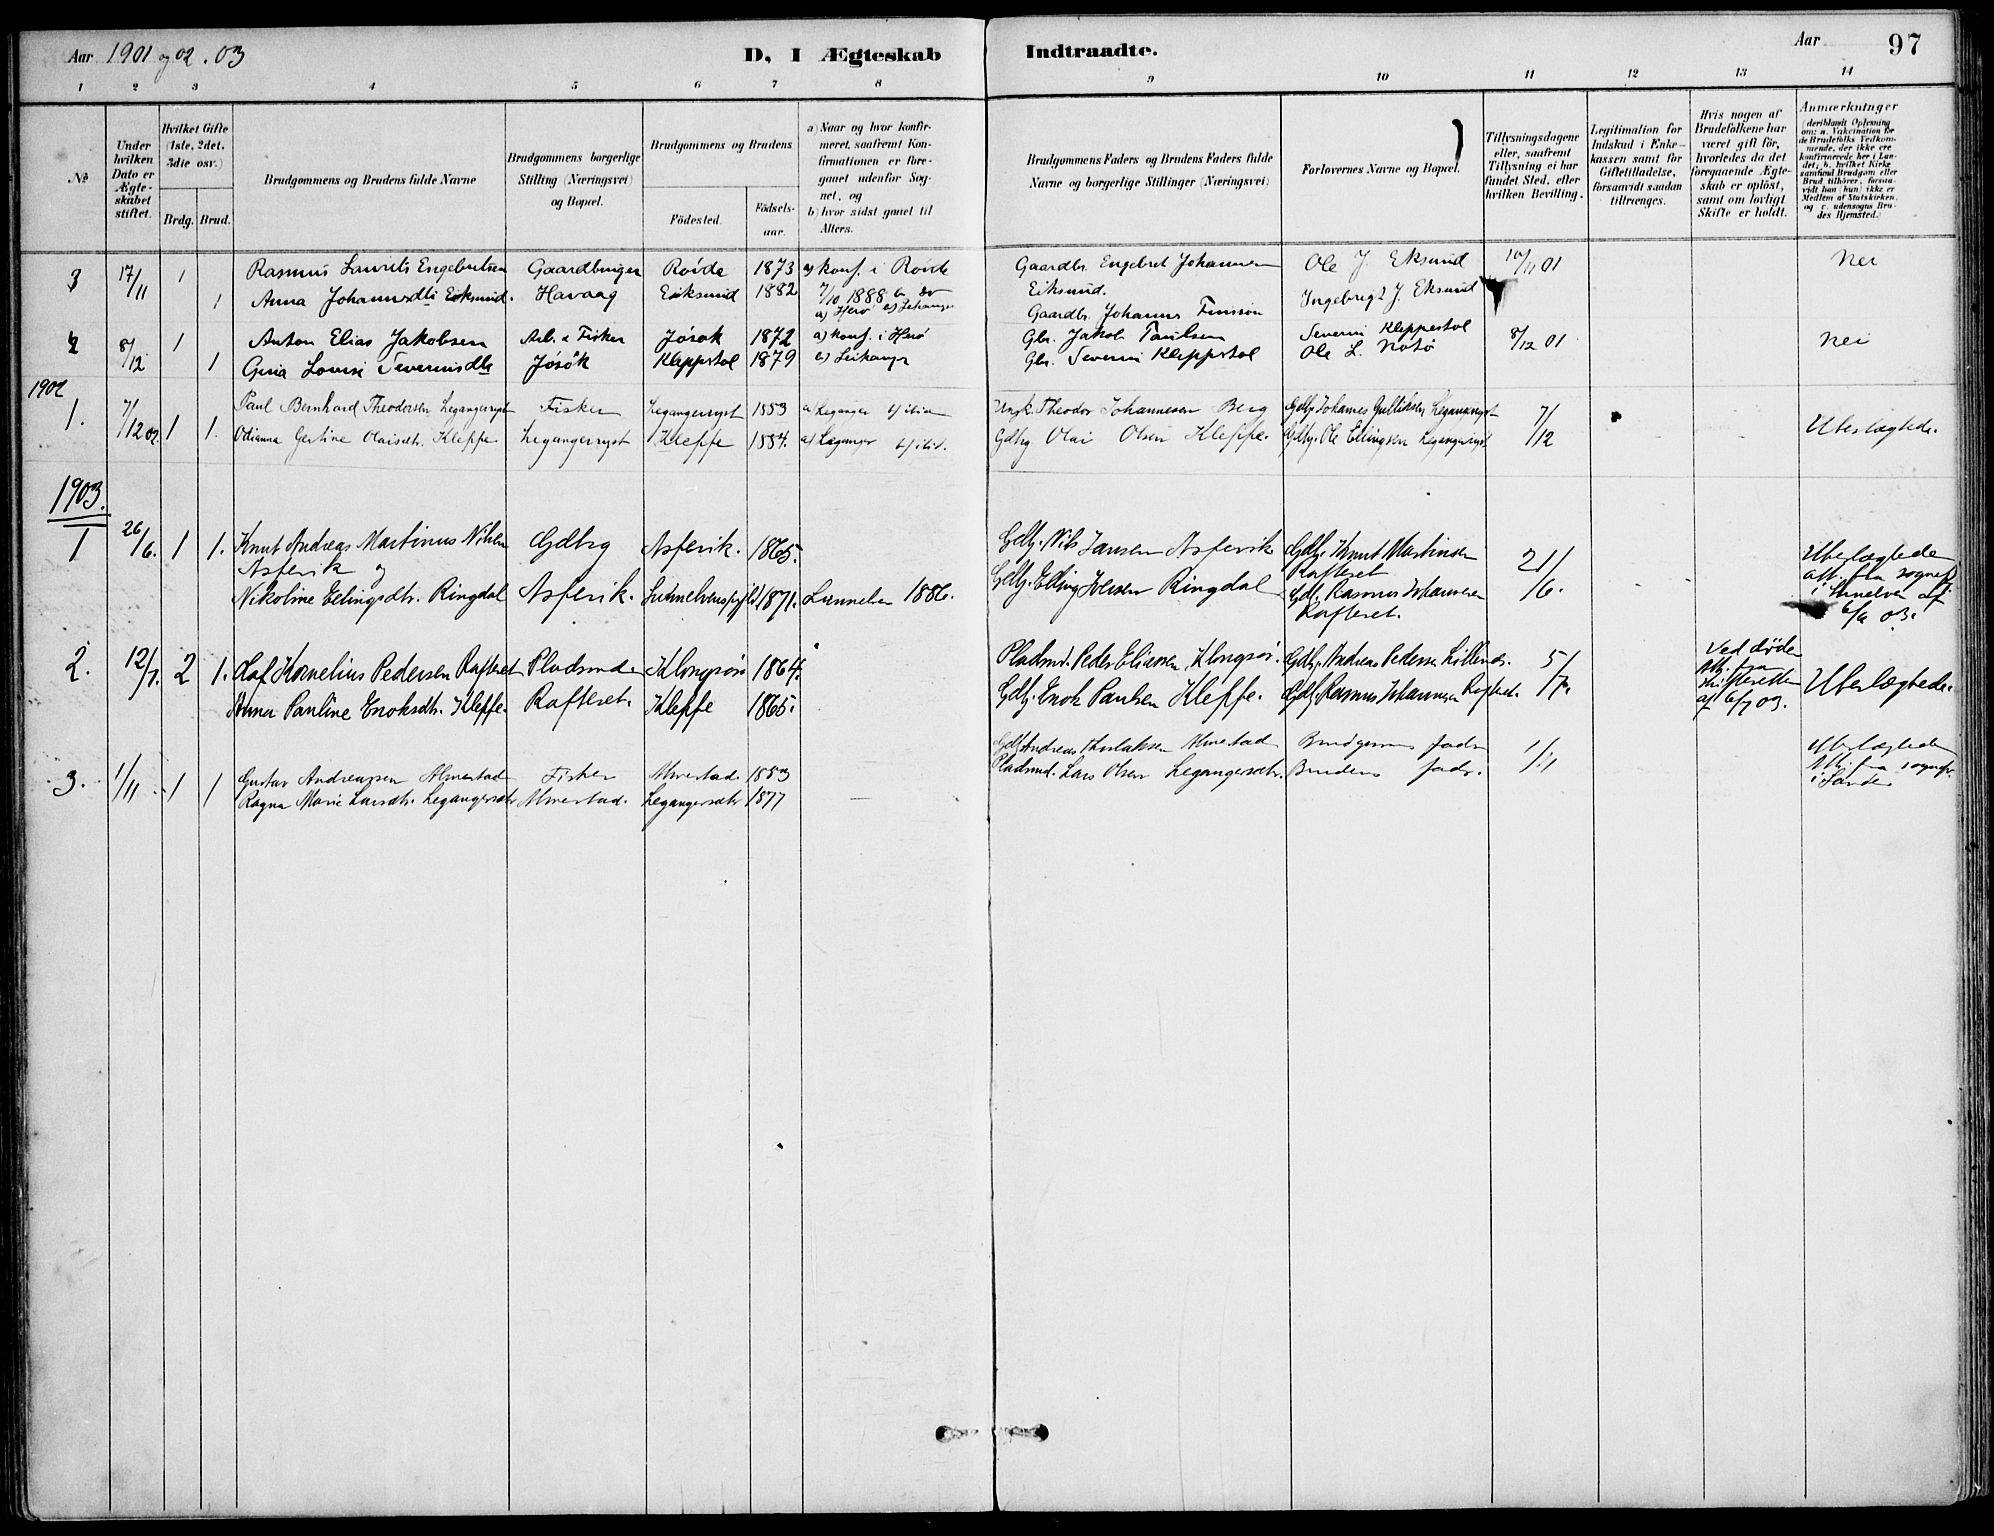 Aar 1901 og 02 . 03
D, I Ægteskab
Indtraadte.
Aar
97
1 2 3 4 5 6 7 8 9 10 11 12 13 14
№
Under hvilken Dato er Ægteskabet stiftet.
Hvilket Gifte (1ste, 2det, 3die osv.)
Brdg. Brud.
Brudgommens og Brudens fulde Navne
Brudgommens borgerlige Stilling (Næringsvei) og Bopæl.
Brudgommens og Brudens
Fødested.
Fødselsaar.
a) Naar og hvor konfirmeret, saafremt Konfirmationen er foregaaet udenfor Sognet, og
b) hvor sidst gaaet til Alters.
Brudgommens Faders og Brudens Faders fulde Navne og borgerlige Stillinger (Næringsvei)
Forlovernes Navne og Bopæl.
Tillysningsdagene eller, saafremt Tillysning ei har fundet Sted, efter hvilken Bevilling.
Legitimation for Indskud i Enkekassen samt for Giftetilladelse, forsaavidt saadan tiltrænges.
Hvis nogen af Brudefolkene har været gift før, hvorledes da det foregaaende Ægteskab er opløst, samt om lovligt Skifte er holdt.
Anmærkninger (deriblandt Oplysning om: a. Vakcination for de Brudefolks Vedkommende, der ikke ere konfirmerede her i Landet; b. hvilket Kirkesamfund Brudgom eller Brud tilhører, forsaavidt han (hun) ikke er Medlem af Statskirken, og c. udensogns Brudes Hjemsted.)
3 17/11 1 Rasmus Laurits Engebretsen Gaardbruger Roide 1873 a) konf. i Roide Gaardbr. Engebret Johannesen Ole J. Eksund 10/11 01 Nei
1 Anna Johannesdtr Eiksund. Havaag Eiksund 1882 7/10 1888 Eiksund. Ingebrigt J. Eksund
a) Herø Gaardbr. Johannes
4 8/12 1 Anton Elias Jakobsen Arb. & Fisker Jøsøk 1872 a) konf. i Herø Gbr. Jakob Paulsen Severin Kleppestol 8/12 01 Nei
1 Gina Lovise Severinsdtr Jøsøk Kleppstol 1879 Gbr. Severin Kleppstol Ole L. Notø
1902
1. 7/12 02. 1 Paul Bernhard Theodorsen Legangeryst Fisker Legangeryst 1883 a) Leganger b) ibid Ungk. Theodor Johannesen Berg Gdbg. Johannes Gulliksen Legangeryst 7/
1. Odianna Gertine Olaisdtr. Kleppe Legangeryst Kleppe 1884. a) Leganger b) ibid. Gdbrg Olai Olsen Kleppe. Gdbg. Ole Ellingsen Legangeryst /12 Ubeslægtede.
1903.
1 26/6. 1 1. Knut Andreas Martinus Nilsen Gdbrg Asperik. 1865. Gdbg. Nils Jansen Asperik Gdbg. Knut Martinsen 21/ Ubeslægtede
Asperik og Rafteset att. fra sognepr
Nikoline Ellingsdtr. Ringdal Asperik. 1871. Sunnelven 1886. Gdbg. Elling Ringdal Gdb. Rasmus Johannesen /6. i Sunelven af
Rafteset. 6/6 03.
2. 12/7. 2 1. Olaf Kornelius Pedersen Rafteset Pladsmd. Klongsøi 1864. Pladsmd. Peder Eliassen Klongsøi. Gdbg. Andreas Pedersen 5/ Ved døden Att. fra Skifteretten
Anna Pauline Enoksdtr. Kleppe. Rafteset. Kleppe 1865. Gdbg. Enok Paulsen Kleppe. Gdbg. Rasmus Johannesen Rafteset. /7. af 6/7 03. Ubeslægtede.
3. 1/11 1 1 Gustav Andreassen Almestad Fisker Almestad. 1883 Gdbg. Andreas Thorlaksen Almestad Brudgommens fader 1/11 Ubeslægtede
Ragna Marie Larsdtr. Legangersætr Almestad. Legangersætr 1877 Pladsmd. Lars Olsen Legangersætr. Brudens fader. Att. fra sognepr. i Sande